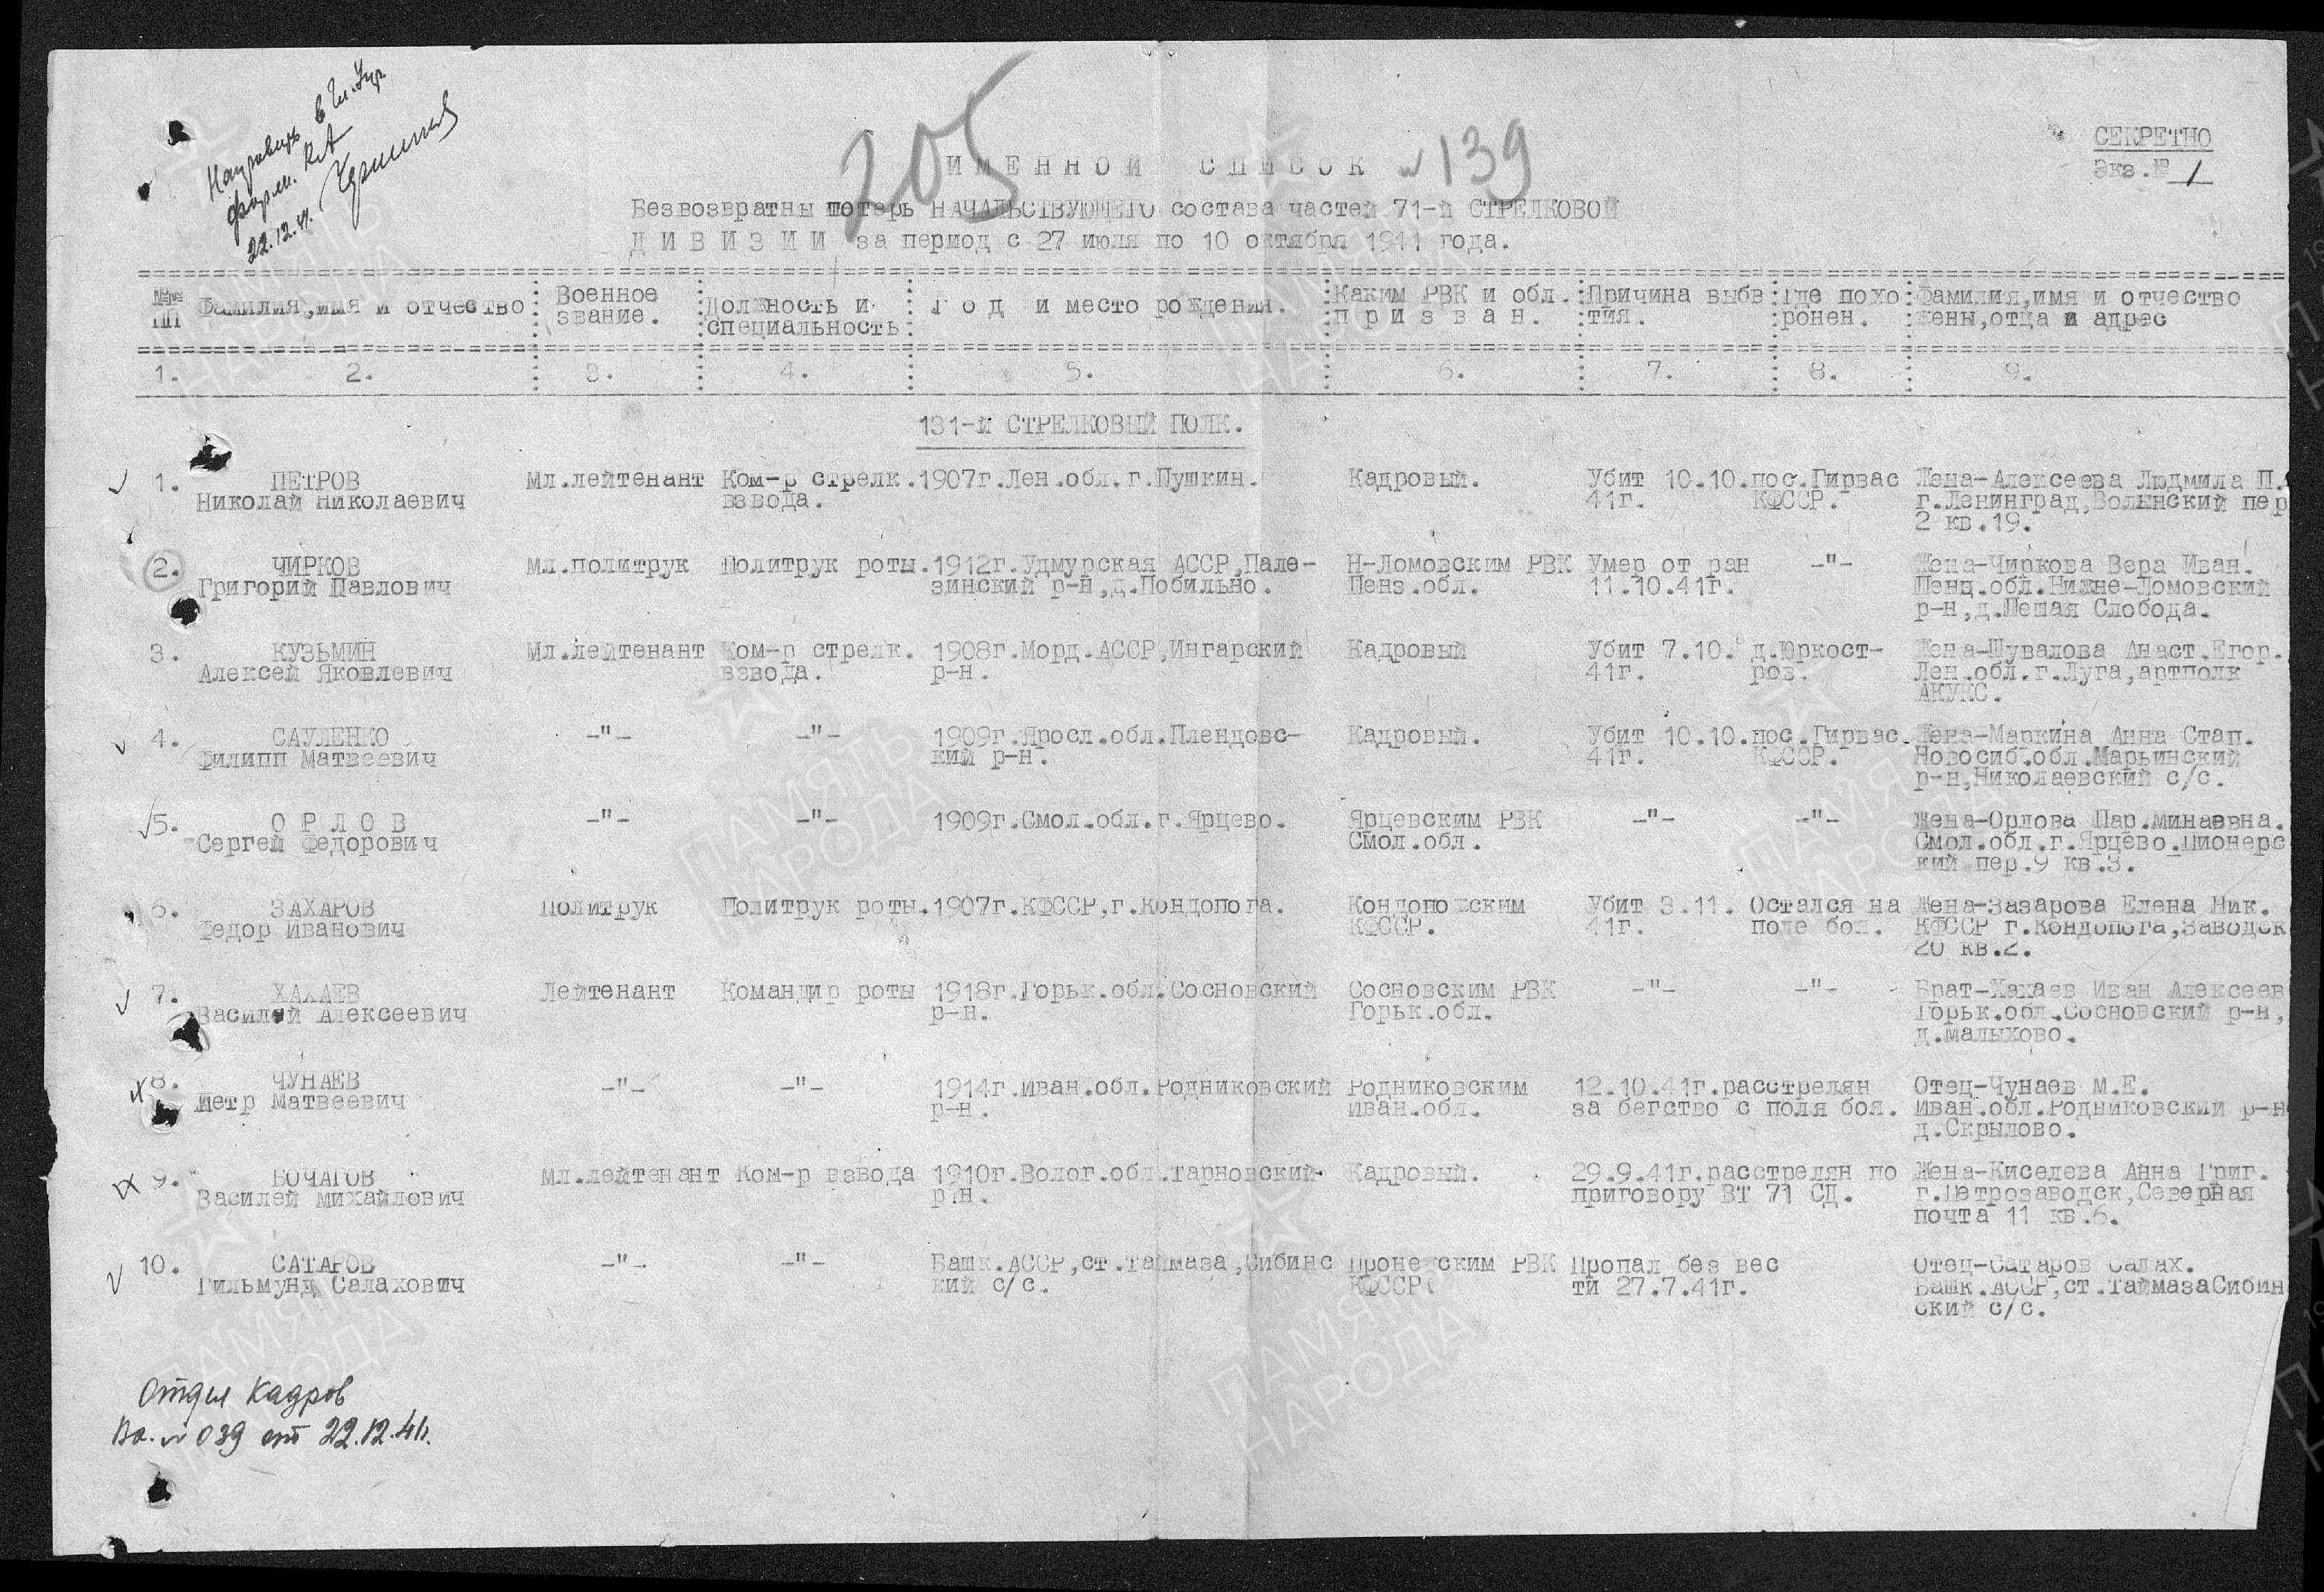 22.12.41.
205
ИМЕННОЙ СПИСОК № 139
СЕКРЕТНО
Экз.№ 1
Безвозвратны потерь НАЧАЛЬСТВУЮЩЕГО состава частей 71-й СТРЕЛКОВОЙ
ДИВИЗИИ за период с 27 июля по 10 октября 1941 года.
№№ ПП : Фамилия,имя и отчество : Военное звание. : Должность и специальность : Год и место рождения. : Каким РВК и обл. призван. : Причина выбытия. : Где похоронен. : Фамилия,имя и отчество жены,отца и адрес
1. 2. 3. 4. 5. 6. 7. 8. 9.
131-й СТРЕЛКОВЫЙ ПОЛК.
1. ПЕТРОВ Мл.лейтенант Ком-р стрелк. 1907г.Лен.обл.г.Пушкин. Кадровый. Убит 10.10. пос.Гирвас Жена-Алексеева Людмила П.
Николай Николаевич взвода. 41г. КФССР. г.Ленинград,Волынский пер
2 кв.19.
2. ЧИРКОВ Мл.политрук Политрук роты. 1912г.Удмурская АССР,Пале- Н-Ломовским РВК Умер от ран -"- Жена-Чиркова Вера Иван.
Григорий Павлович зинский р-н,д.Побильно. Пенз.обл. 11.10.41г. Пенц.обл.Нижне-Ломовский
р-н,д.Пешая Слобода.
3. КУЗЬМИН Мл.лейтенант Ком-р стрелк. 1908г.Морд.АССР,Ингарский Кадровый Убит 7.10. д.Юркост- Жена-Шувалова Анаст.Егор.
Алексей Яковлевич взвода. р-н. 41г. ров. Лен.обл.г.Луга,артполк
АКУКС.
4. САУЛЕНКО -"- -"- 1909г.Яросл.обл.Плендовс- Кадровый. Убит 10.10. пос.Гирвас. Жена-Маркина Анна Стап.
Филипп Матвеевич кий р-н. 41г. КФССР. Новосиб.обл.Марьинский
р-н,Николаевский с/с.
5. ОРЛОВ -"- -"- 1909г.Смол.обл.г.Ярцево. Ярцевским РВК -"- -"- Жена-Орлова Мар.минаевна.
Сергей Федорович Смол.обл. Смол.обл.г.Ярцево.Пионерс
кий пер.9 кв.3.
6. ЗАХАРОВ Политрук Политрук роты. 1907г.КФССР,г.Кондопога. Кондопожским Убит 3.11. Остался на Жена-Зазарова Елена Ник.
Федор Иванович КФССР. 41г. поле бол. КФССР г.Кондопога,Заводск
20 кв.2.
7. ХАХАЕВ Лейтенант Командир роты 1918г.Горьк.обл.Сосновский Сосновским РВК -"- -"- Брат-Хахаев Иван Алексеев
Василий Алексеевич р-н. Горьк.обл. Горьк.обл.Сосновский р-н,
д.Малыхово.
8. ЧУНАЕВ -"- -"- 1914г.Иван.обл.Родниковский Родниковским 12.10.41г.расстрелян Отец-Чунаев М.Е.
Петр Матвеевич р-н. Иван.обл. за бегство с поля боя. Иван.обл.Родниковский р-н
д.Скрылово.
9. БОЧАГОВ Мл.лейтенант Ком-р взвода 1910г.Волог.обл.Тарновский Кадровый. 29.9.41г.расстрелян по Жена-Киселева Анна Григ.
Василей Михайлович р-н. приговору ВТ 71 СД. г.Петрозаводск,Северная
почта 11 кв.6.
10. САТАРОВ -"- -"- Башк.АССР,ст.Таймаза,Сибинс Проне ским РВК Пропал без вес Отец-Сатаров Салах.
Гильмунд Салахович кий с/с. КФССР. ти 27.7.41г. Башк.АССР,ст.ТаймазаСибин
ский с/с.
Отдел Кадров
Вх. № 039 от 22.12.41.
ПАМЯТЬ НАРОДА